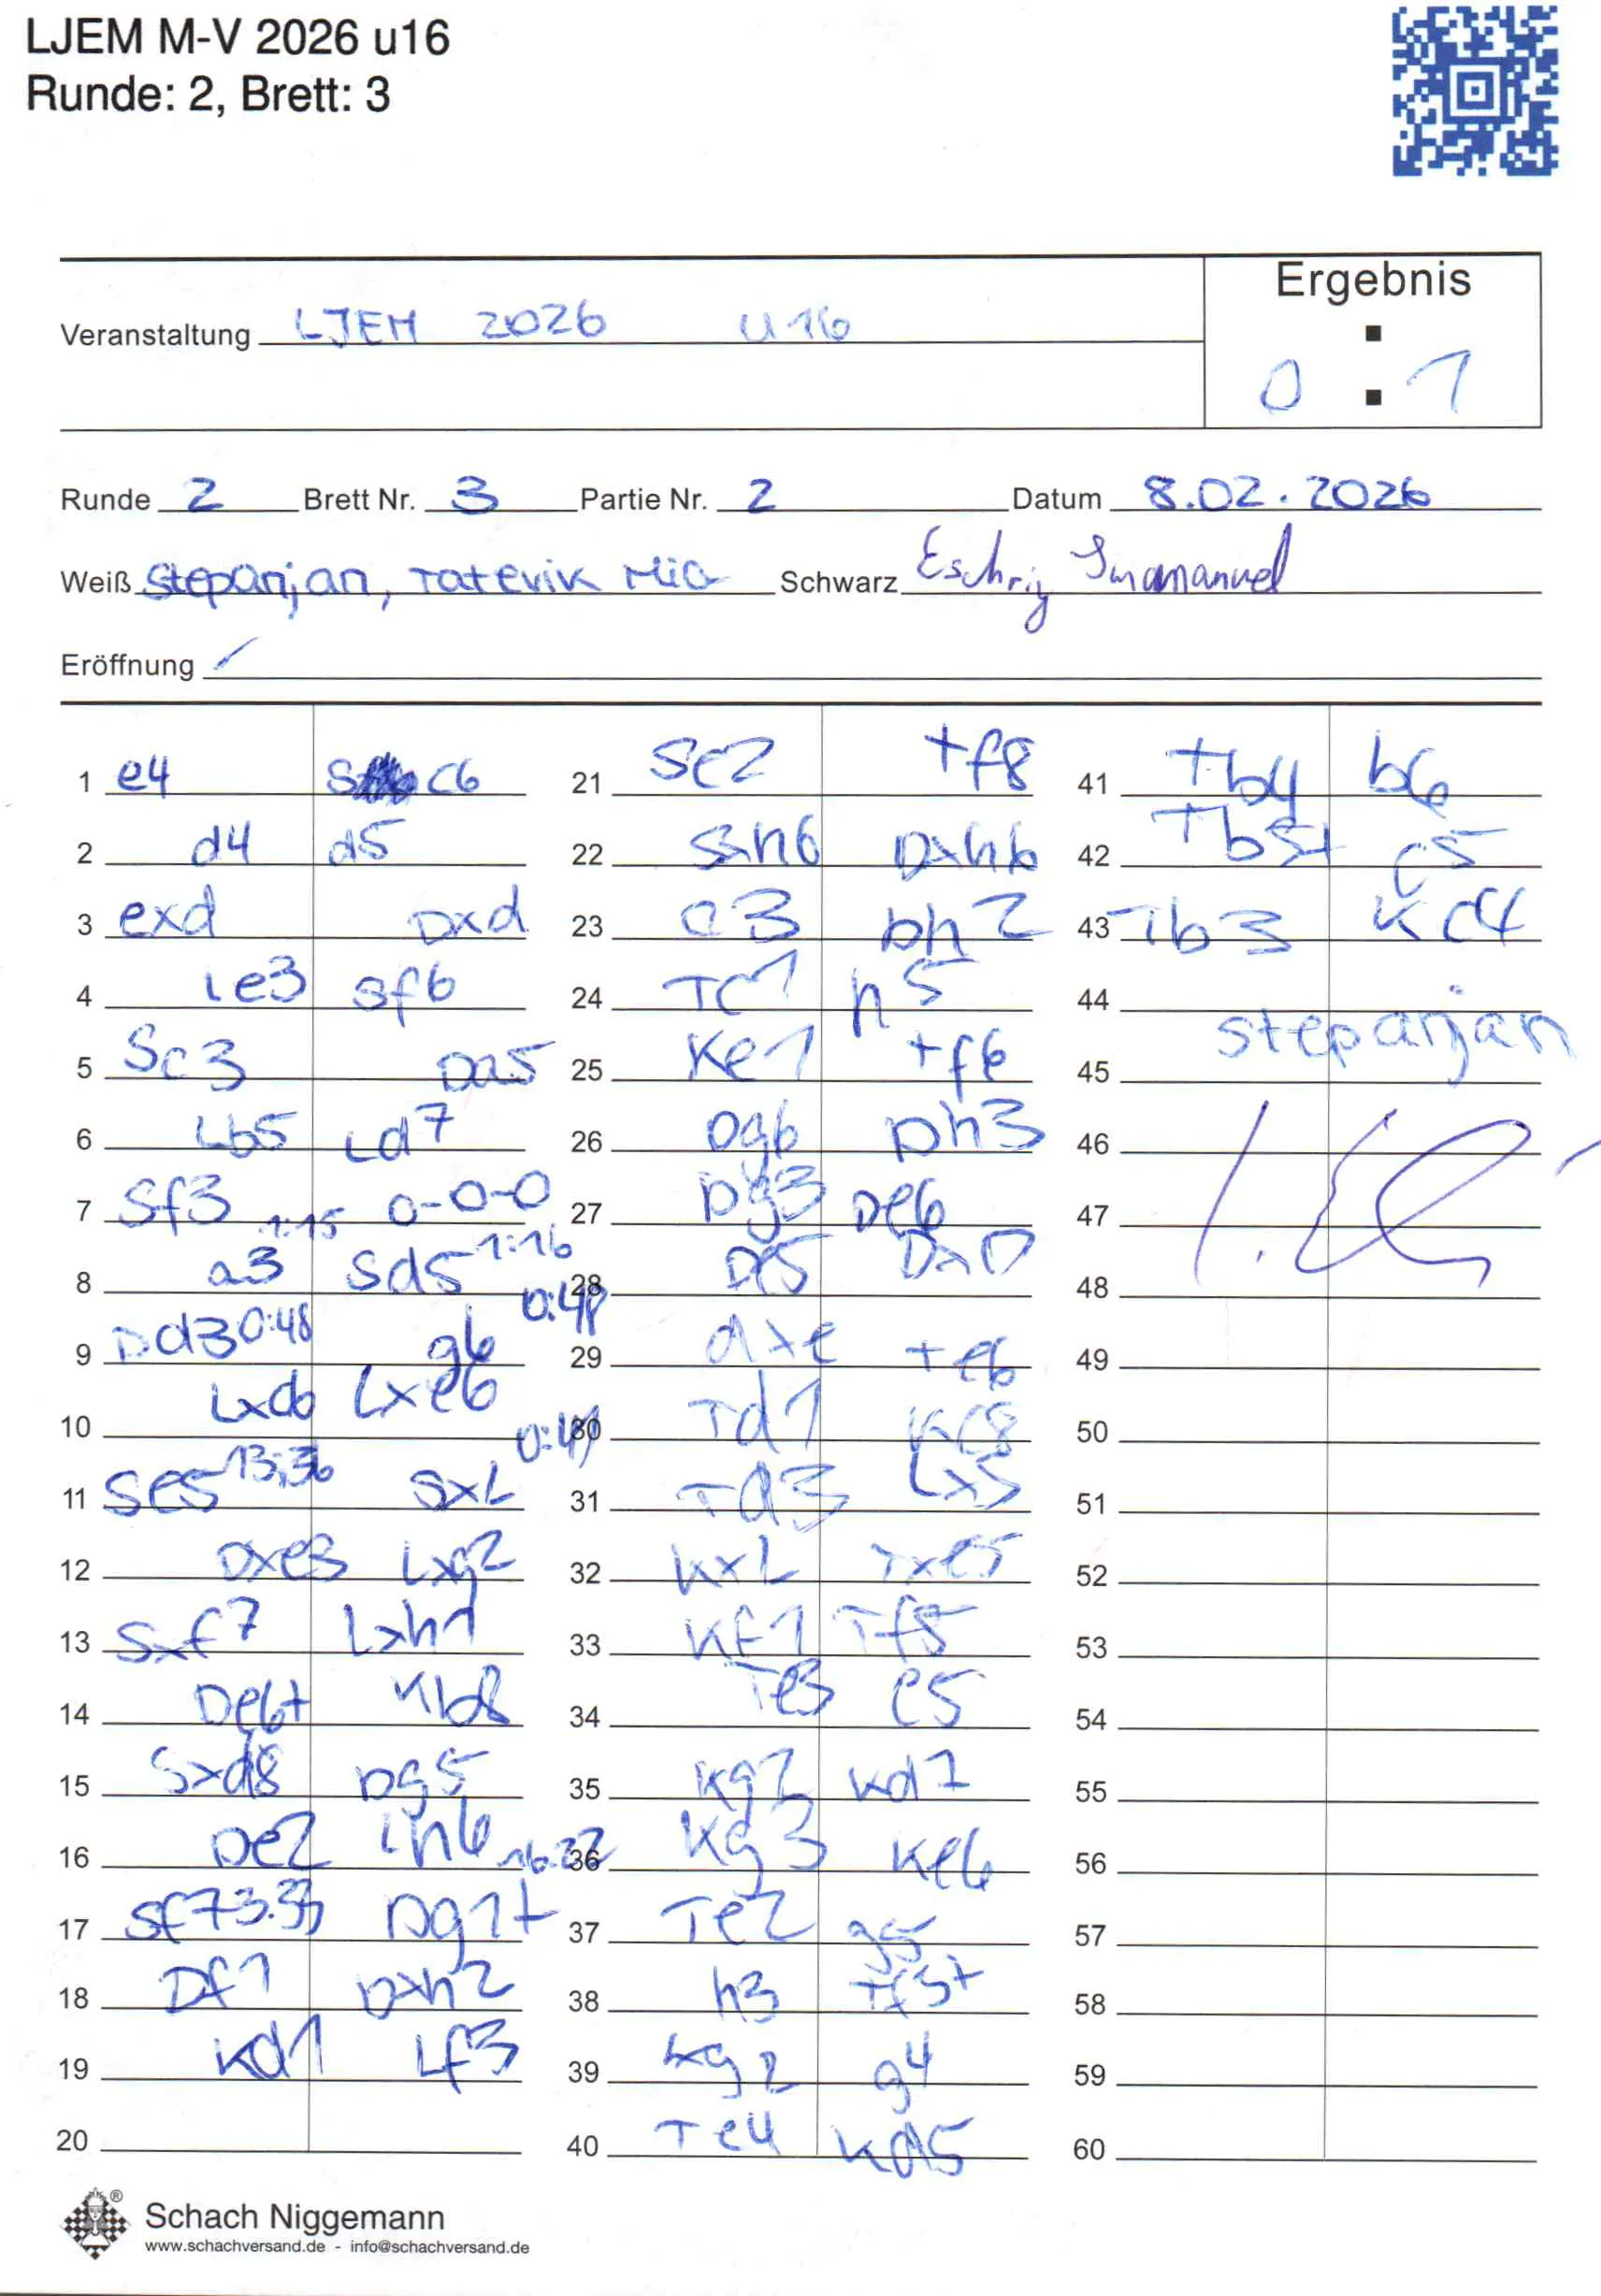 LJEM M-V 2026 u16
Runde: 2, Brett: 3
Ergebnis
Veranstaltung LJEM 2026 U16
0 : 1
Runde 2 Brett Nr. 3 Partie Nr. 2 Datum 8.02.2026
Weiß Stepanjan, Tatevik Mia Schwarz Eschrig Immanuel
Eröffnung
1 e4 S c6
2 d4 d5
3 exd Dxd
4 Le3 Sf6
5 Sc3 Da5
6 Lb5 Ld7
7 Sf3 0-0-0
8 a3 1:15 Sd5 1:16
9 Dd3 0:48 g6 0:48
10 Lxc6 Lxc6
11 Se5 13:36 SxL 0:41
12 Dxe3 Lxg2
13 Sxf7 Lxh1
14 De6+ Kb8
15 Sxd8 Dg5
16 De2 Lh6 16:22
17 Sf7 3:33 Dg1+
18 Df1 Dxh2
19 Kd1 Lf3
20
21 Se2 Tf8
22 Sxh6 Dxh6
23 c3 Dh2
24 Tc1 h5
25 Ke1 Tf6
26 Dg6 Dh3
27 Dg3 De6
28 De5 DxD
29 dxe Te6
30 Td1 Kc8
31 Td3 LxS
32 KxL Txe5
33 Kf1 Tf5
34 Te3 e5
35 Kg2 Kd7
36 Kg3 Ke6
37 Te2 g5
38 h3 Tf3+
39 Kg2 g4
40 Te4 Kd5
41 Tb4 b6
42 Tb5+ c5
43 Tb3 Kc4
44
Stepanjan
45
46
47
48
49
50
51
52
53
54
55
56
57
58
59
60
Schach Niggemann
www.schachversand.de - info@schachversand.de